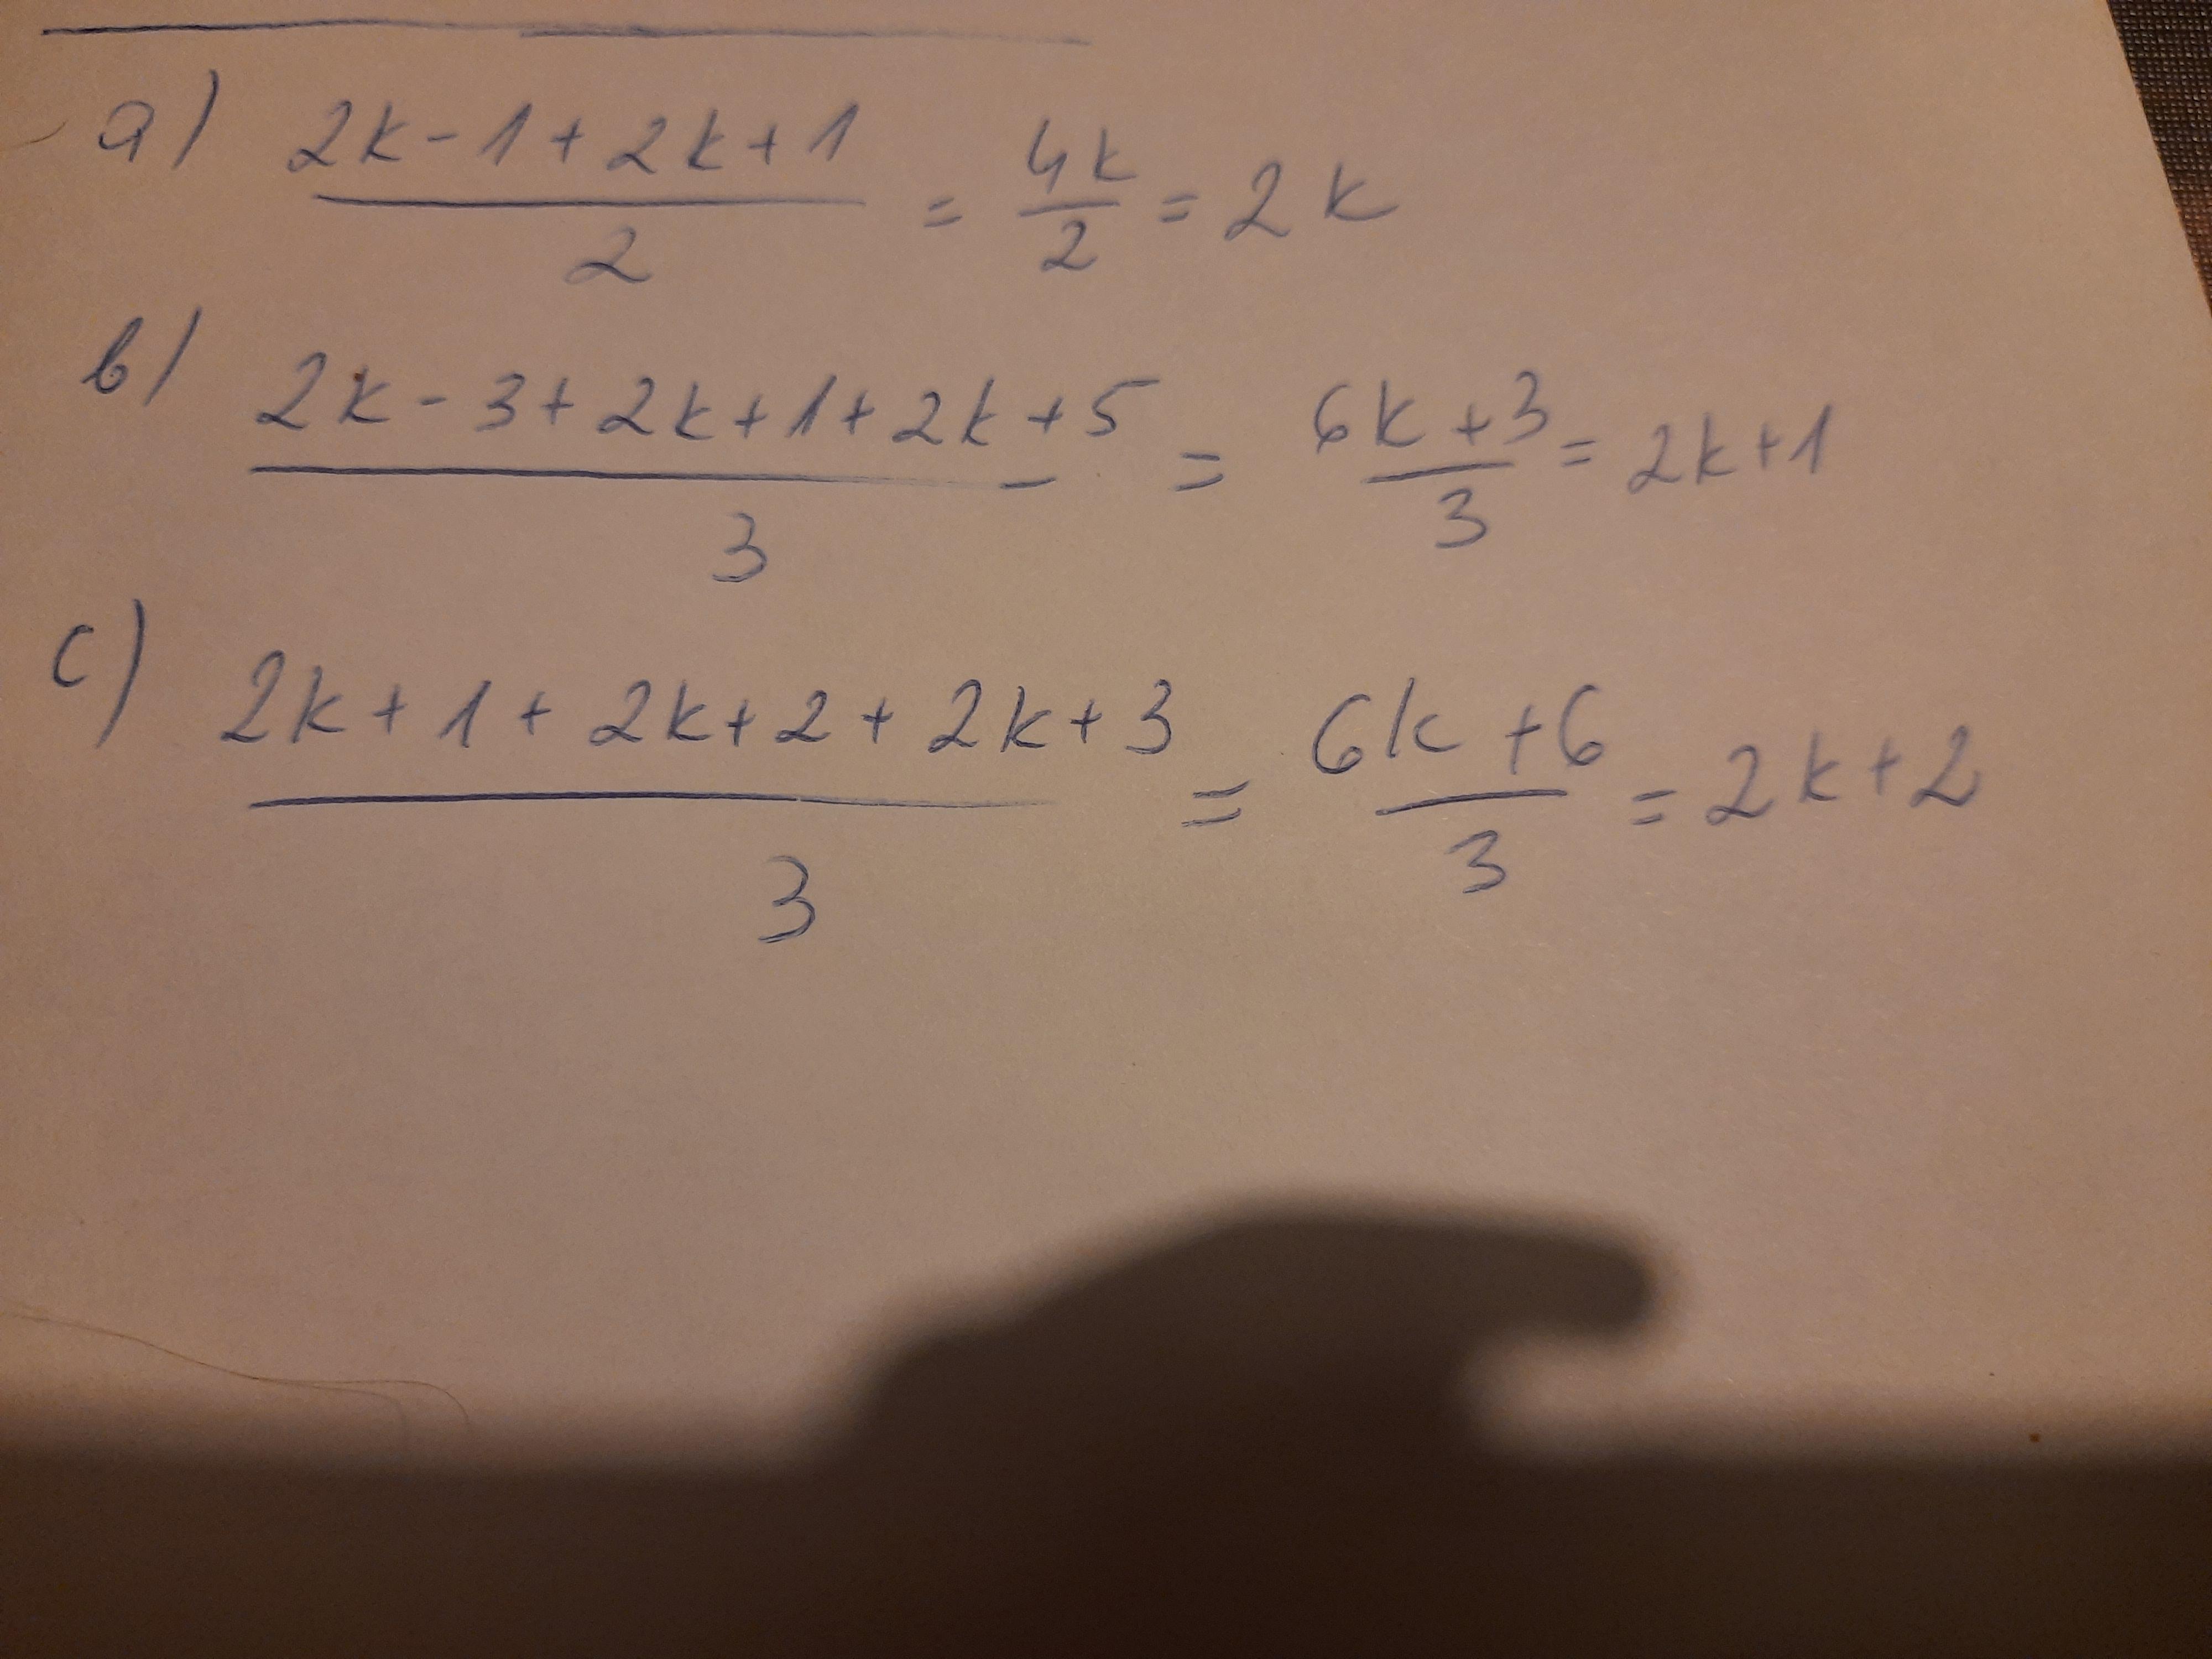 a) (2k-1+2k+1)/2 = 4k/2 = 2k
b) (2k-3+2k+1+2k+5)/3 = (6k+3)/3 = 2k+1
c) (2k+1+2k+2+2k+3)/3 = (6k+6)/3 = 2k+2